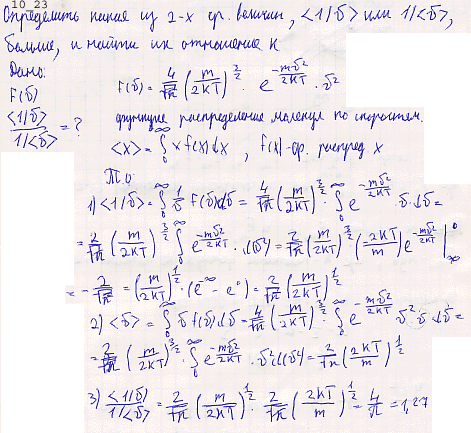 10_23
Определить какая из 2-х ср. величин, <1/υ> или 1/<υ>,
больше, и найти их отношение k
Дано:
F(υ)
<1/υ> / 1/<υ> = ?
F(υ) = 4/√π (m/2kT)^(3/2) · e^(-mυ²/2kT) · υ²
функция распределения молекул по скоростям.
<x> = ∫₀^∞ x f(x) dx , f(x) - ср. распред x
Т.о
1) <1/υ> = ∫₀^∞ 1/υ f(υ)dυ = 4/√π (m/2kT)^(3/2) · ∫₀^∞ e^(-mυ²/2kT) · υ · dυ =
= 2/√π (m/2kT)^(3/2) ∫₀^∞ e^(-mυ²/2kT) · d(υ²) = 2/√π (m/2kT)^(3/2) (-2kT/m) e^(-mυ²/2kT) |₀^∞
= - 2/√π = (m/2kT)^(1/2) · (e^-∞ - e^0) = 2/√π (m/2kT)^(1/2)
2) <υ> = ∫₀^∞ υ f(υ) dυ = 4/√π (m/2kT)^(3/2) · ∫₀^∞ e^(-mυ²/2kT) υ² · υ · dυ =
= 2/√π (m/2kT)^(3/2) · ∫₀^∞ e^(-mυ²/2kT) · υ² d(υ²) = 2/√π (2kT/m)^(1/2)
3) <1/υ> / 1/<υ> = 2/√π (m/2kT)^(1/2) · 2/√π (2kT/m)^(1/2) = 4/π = 1,27